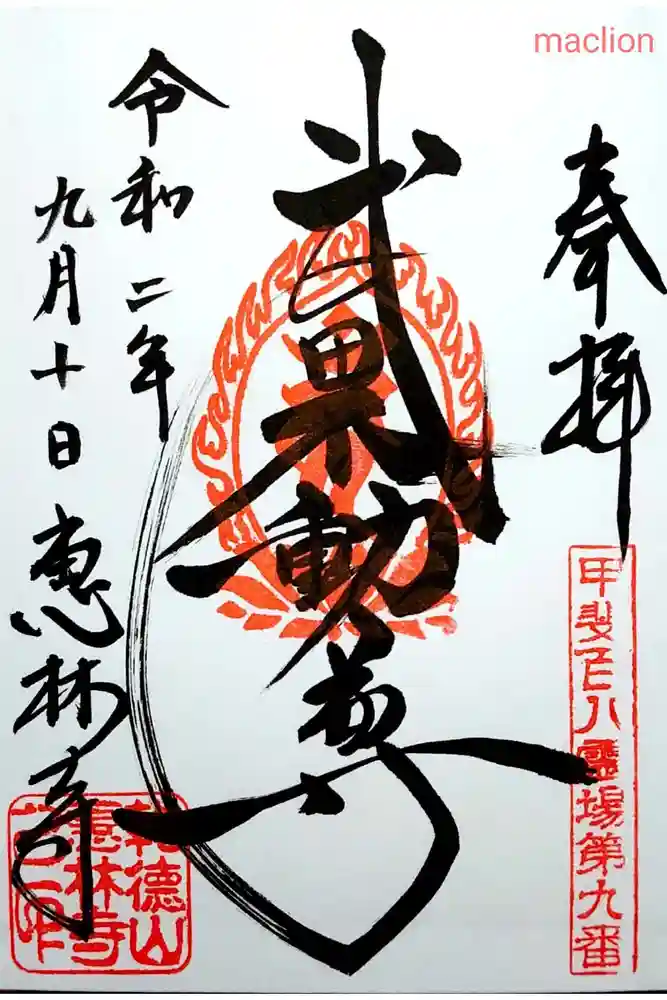 maclion
奉拝
甲斐百八霊場第九番
武田不動尊
令和二年
九月十日
恵林寺
乾徳山
恵林寺